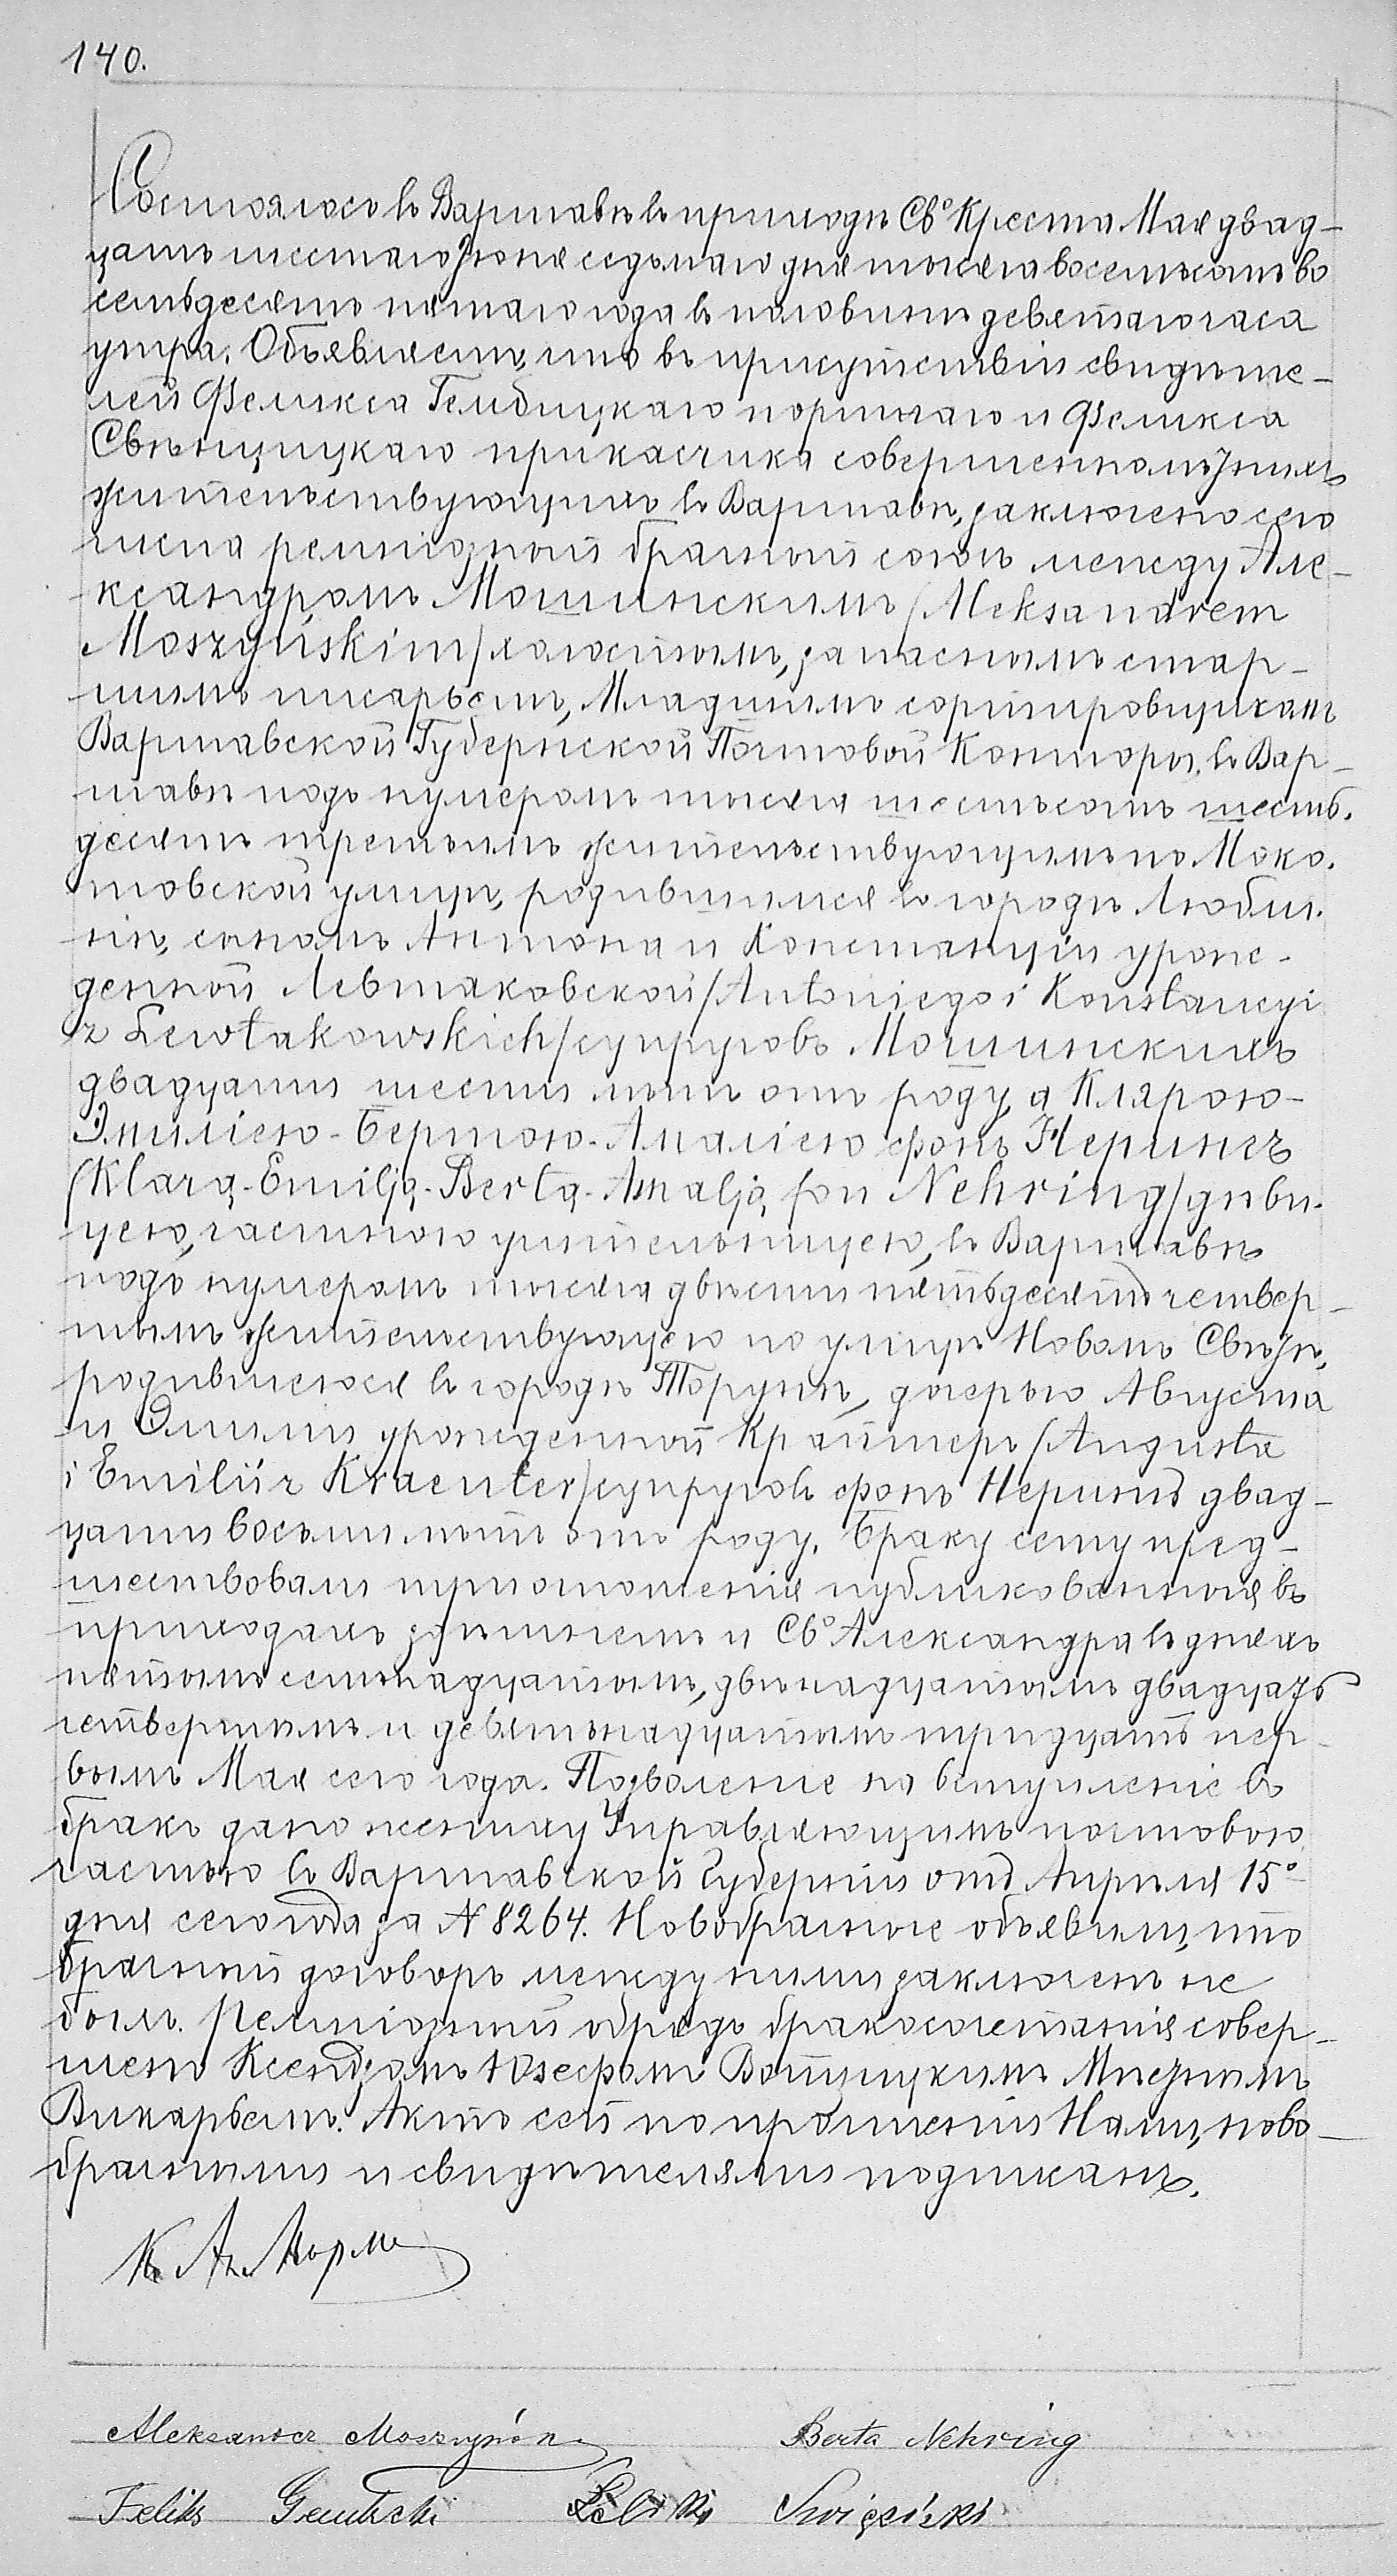 140.
Состоялось въ Варшавѣ въ приходѣ Св° Креста Мая двад-
цать шестаго/Іюня седьмаго дня тысяча восемьсотъ во
семьдесятъ пятаго года въ половинѣ девятаго часа
утра. Объявляемъ, что въ присутствіи свидѣте-
лей Феликса Гембицкаго портнаго и Феликса
Свѣнцицкаго прикасчика совершеннолѣтнихъ
жительствующихъ въ Варшавѣ, заключено сего
числа религіозный брачный союзъ между Але-
ксандромъ Мошинскимъ /Aleksandrem
Moszyńskim/ холостымъ, запаснымъ стар-
шимъ писарьемъ, Младшимъ сортировщикамъ
Варшавской Губернской Почтовой Конторы, въ Вар-
шавѣ подъ нумеромъ тысяча шестьсотъ шесть.
десятъ третьимъ жительствующимъ по Моко.
товской улицѣ, родившимся въ городѣ Любли.
нѣ, сыномъ Антона и Констанціи урож-
денной Левтаковской /Antoniego i Konstancyi
z Lewtakowskich/ супруговъ Мошинскихъ
двадцати шести лѣтъ отъ роду, а Кларою-
Эмиліею-Бертою-Амаліею фонъ Нерингъ
/Klarą-Emilją-Bertą-Amalją fon Nehring/ дѣви.
цею, частною учительницею, въ Варшавѣ
подъ нумеромъ тысяча двѣсти пятьдесятъ четвер-
тымъ жительствующею по улицѣ Новомъ Свѣтѣ,
родившеюся въ городѣ Торунѣ, дочерью Августа
и Эмиліи урожденной Крайтеръ /Augusta
i Emilii z Kraeuter/ супруговъ фонъ Нерингъ двад-
цати восьми лѣтъ отъ роду. Браку сему пред-
шествовали три оглошенія публикованныя въ
приходахъ здѣшнемъ и Св° Александра въ дняхъ
пятомъ семнадцатомъ, двѣнадцатомъ двадцать
четвертымъ и девятьнадцатымъ тридцать пер-
вымъ Мая сего года. Позволеніе на вступленіе въ
бракъ дано жениху Управляющимъ почтовою
частью въ Варшавской Губерніи отъ Апрѣля 15°
дня сего года за N 8264. Новобрачные объявили, что
брачный договоръ между ними заключенъ не
былъ. Религіозный обрядъ бракосочетанія совер-
шенъ Ксендзомъ Юзефомъ Мѣстнымъ
Викарьемъ. Актъ сей по прочтеніи Нами, ново-
брачными и свидѣтелями подписанъ.
Aleksander Moszyński
Berta Nehring
Feliks Gembicki
Feliks Święcicki